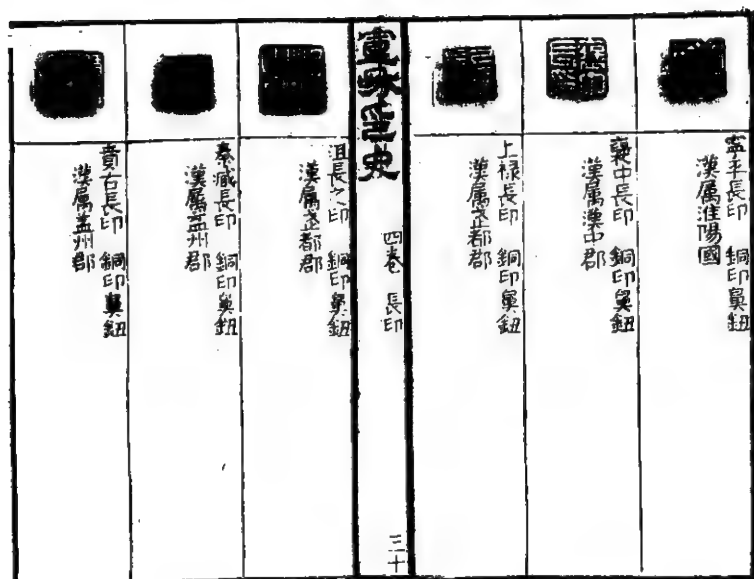 寧平長印 銅印鼻鈕
漢屬淮陽國
襃中長印 銅印鼻鈕
漢屬漢中郡
上祿長印 銅印鼻鈕
漢屬武都郡
四卷 長印
三十
沮長之印 銅印鼻鈕
漢屬武都郡
秦臧長印 銅印鼻鈕
漢屬益州郡
賁古長印 銅印鼻鈕
漢屬益州郡